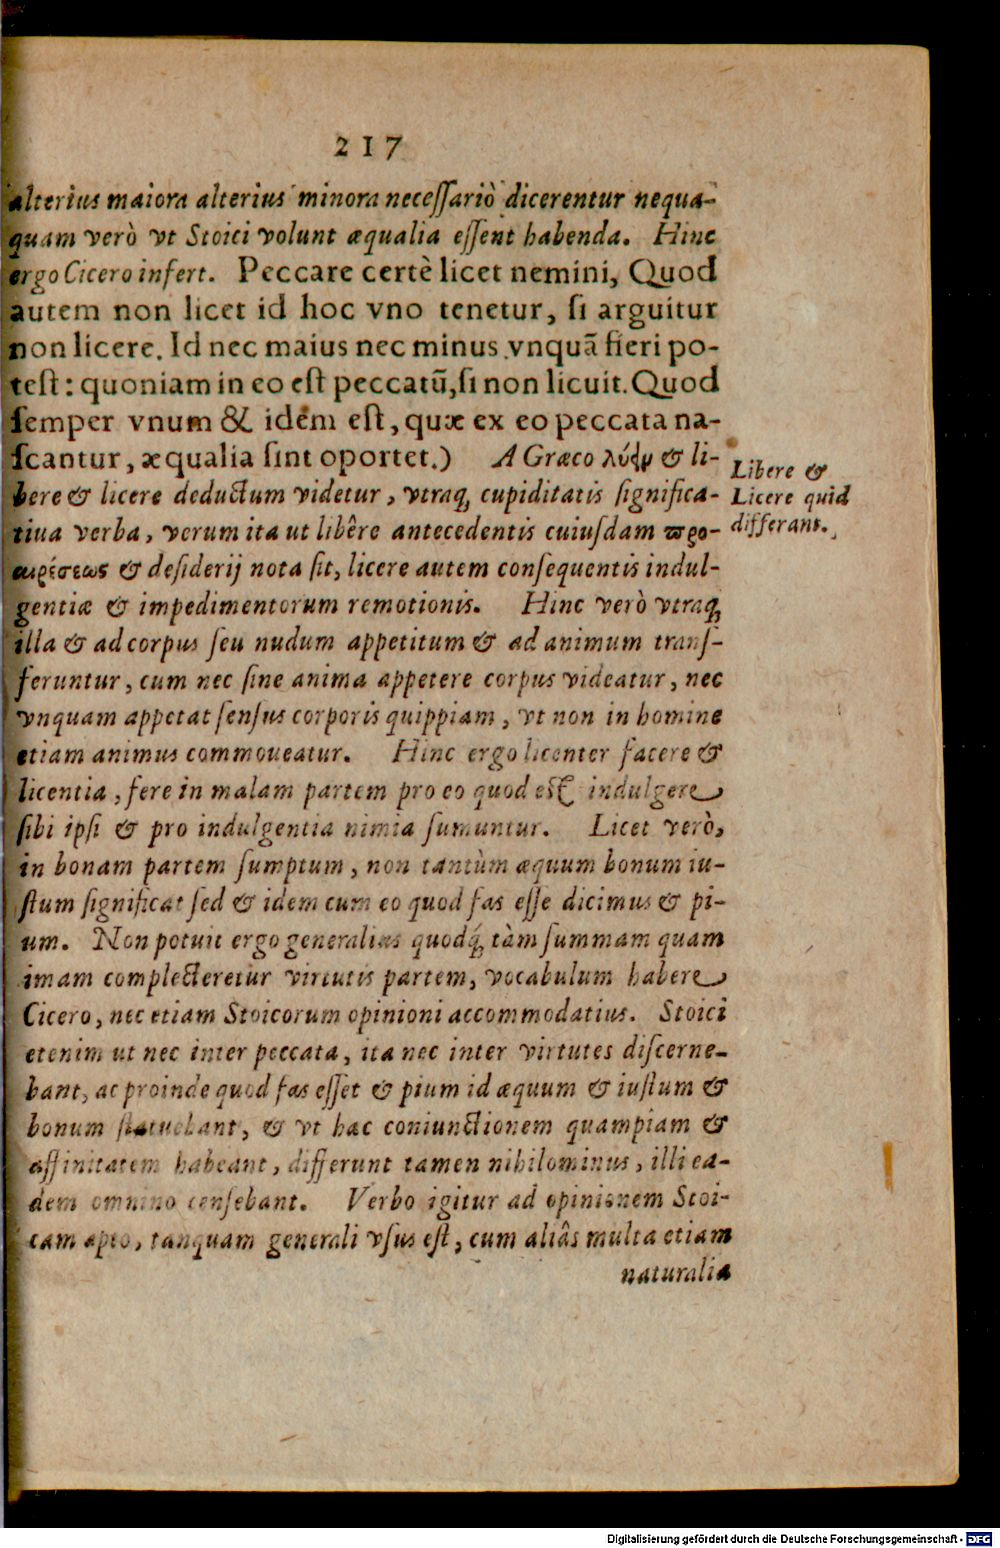 217
alterius maiora alterius minora neceſſariò dicerentur nequa-
quam verò vt Stoici volunt æqualia eſſent habenda. Hinc
ergo Cicero infert. Peccare certè licet nemini, Quod
autem non licet id hoc vno tenetur, ſi arguitur
non licere. Id nec maius nec minus vnquā fieri po-
teſt: quoniam in eo eſt peccatū, ſi non licuit. Quod
ſemper vnum & idem eſt, quæ ex eo peccata na-
ſcantur, æqualia ſint oportet.) A Græco & li-
bere & licere deductum videtur, vtraq́ cupiditatis ſignifica-
tiua verba, verum ita ut libêre antecedentis cuiuſdam προ-
αιρέσεως & deſiderij nota ſit, licere autem conſequentis indul-
gentiæ & impedimentorum remotionis. Hinc verò vtraq́
illa & ad corpus ſeu nudum appetitum & ad animum tranſ-
feruntur, cum nec ſine anima appetere corpus videatur, nec
vnquam appetat ſenſus corporis quippiam, vt non in homine
etiam animus commoueatur. Hinc ergo licenter facere &
licentia, fere in malam partem pro eo quod est indulgere
ſibi ipſi & pro indulgentia nimia ſumuntur. Licet verò,
in bonam partem ſumptum, non tantùm æquum bonum iu-
ſtum ſignificat ſed & idem cum eo quod fas eſſe dicimus & pi-
um. Non potuit ergo generalius quodq́ tàm ſummam quam
imam complecteretur virtutis partem, vocabulum habere
Cicero, nec etiam Stoicorum opinioni accommodatius. Stoici
etenim ut nec inter peccata, ita nec inter virtutes diſcerne-
bant, ac proinde quod fas eſſet & pium id æquum & iuſtum &
bonum ſtatuebant, & vt hac coniunctionem quampiam &
affinitatem habeant, differunt tamen nihilominus, illi ea-
dem omnino cenſebant. Verbo igitur ad opinionem Stoi-
cam apto, tanquam generali vſus eſt, cum aliâs multa etiam
naturalia
Libere &
Licere quid
differant.
Digitalisierung gefördert durch die Deutsche Forschungsgemeinschaft - DFG